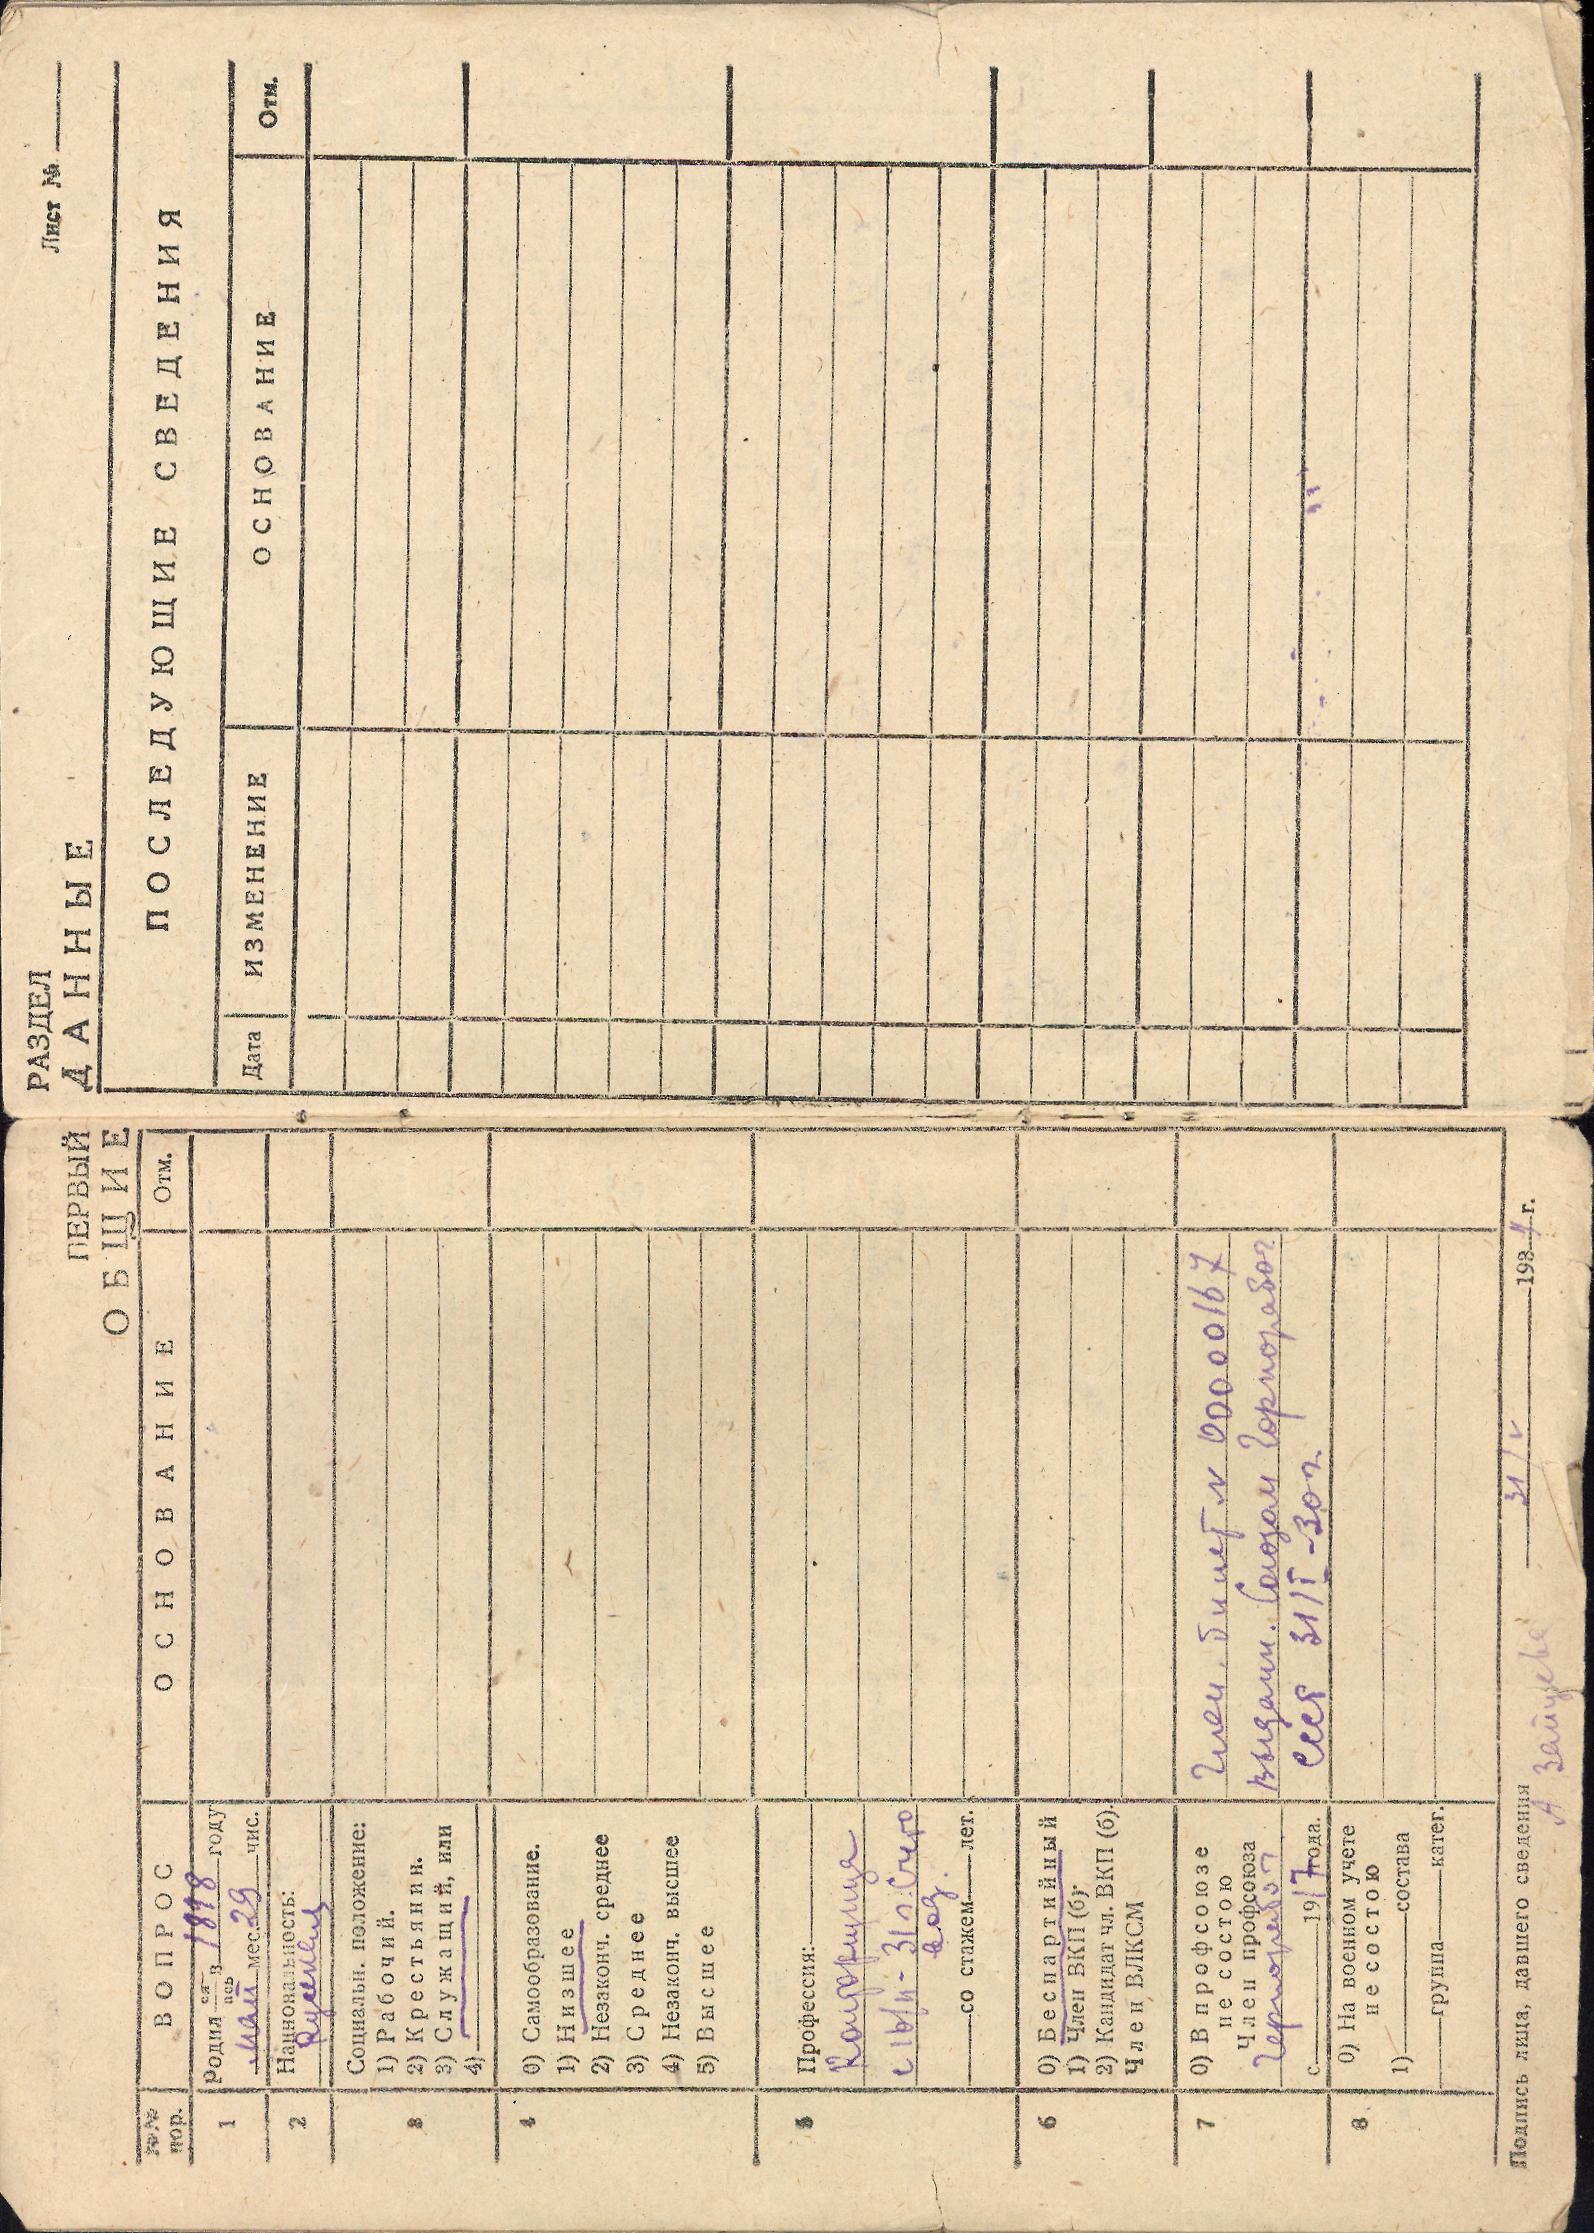 ПЕРВЫЙ
ОБЩИЕ
№№ пор.
ВОПРОС
ОСНОВАНИЕ
Отм.
1
Родил ся ась в 1898 году
мая мес. 29 чис.
2
Национальность:
Русский
3
Социальн. положение:
1) Рабочий.
2) Крестьянин.
3) Служащий, или
4)
4
0) Самообразование.
1) Низшее
2) Незаконч. среднее
3) Среднее
4) Незаконч. высшее
5) Высшее
5
Профессия:
со стажем лет.
6
0) Беспартийный
1) Член ВКП (б)
2) Кандидат чл. ВКП (б).
Член ВЛКСМ
7
0) В профсоюзе
не состою
Член профсоюза
Горнорабоч
с 1917 года.
Член. билет № 0000167
выдан. Союзом Горнорабоч
СССР 31/I-30 г.
8
0) На военном учете
не состою
1) состава
группа катег.
Подпись лица, давшего сведения
А Зайцева
31/V 1934 г.
РАЗДЕЛ
ДАННЫЕ
Лист №
ПОСЛЕДУЮЩИЕ СВЕДЕНИЯ
Дата
ИЗМЕНЕНИЕ
ОСНОВАНИЕ
Отм.